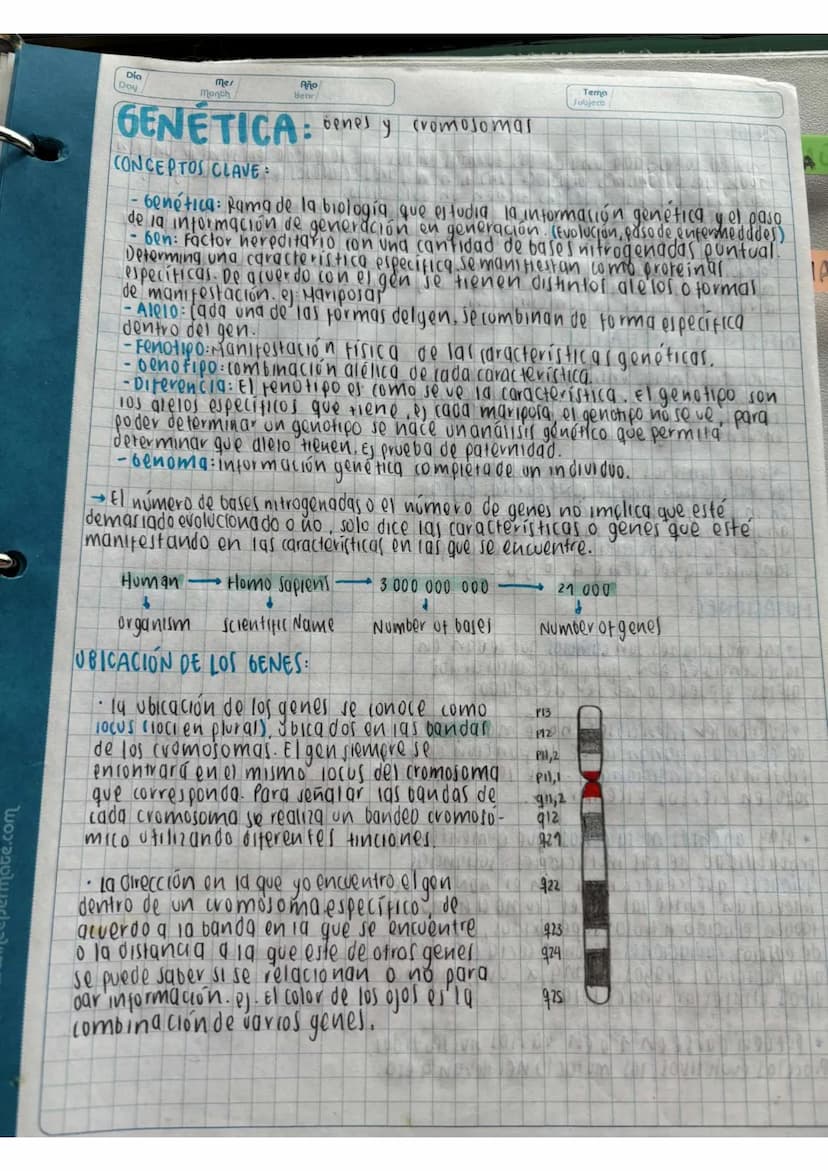 Día
Day
Mes
Month
Año
Year
Tema
Subject
GENÉTICA: Genes y cromosomas
CONCEPTOS CLAVE:
- Genética: Rama de la biología que estudia la información genética y el paso
de la información de generación en generación. (Evolución, paso de enfermedades)
- Gen: Factor hereditario con una cantidad de bases nitrogenadas puntual.
Determina una característica específica. Se manifiestan como proteínas
específicas. De acuerdo con el gen se tienen distintos alelos o formas
de manifestación. ej: Mariposas
- Alelo: Cada una de las formas del gen, se combinan de forma específica
dentro del gen.
- Fenotipo: Manifestación física de las características genéticas.
- Genotipo: combinación alélica de cada característica.
- Diferencia: El fenotipo es como se ve la característica. El genotipo son
los alelos específicos que tiene, ej cada mariposa, el genotipo no se ve, para
poder determinar un genotipo se hace un análisis genético que permita
determinar que alelo tienen. Ej prueba de paternidad.
- Genoma: información genética completa de un individuo.
→ El número de bases nitrogenadas o el número de genes no implica que esté
demasiado evolucionado o no, solo dice las características o genes que esté
manifestando en las características en las que se encuentre.
Human → Homo sapiens → 3 000 000 000 → 21 000
organism scientific Name Number of bases Number of genes
UBICACIÓN DE LOS GENES:
· la ubicación de los genes se conoce como
locus (loci en plural), ubicados en las bandas
de los cromosomas. El gen siempre se
encontrará en el mismo locus del cromosoma
que corresponda. Para señalar las bandas de
cada cromosoma se realiza un bandeo cromosó-
mico utilizando diferentes tinciones.
· la dirección en la que yo encuentro el gen
dentro de un cromosoma específico, de
acuerdo a la banda en la que se encuentre
o la distancia a la que este de otros genes
se puede saber si se relacionan o no para
dar información. ej. El color de los ojos es la
combinación de varios genes.
p13
p12
p11,2
p11,1
q11,2
q12
q21
q22
q23
q24
q25